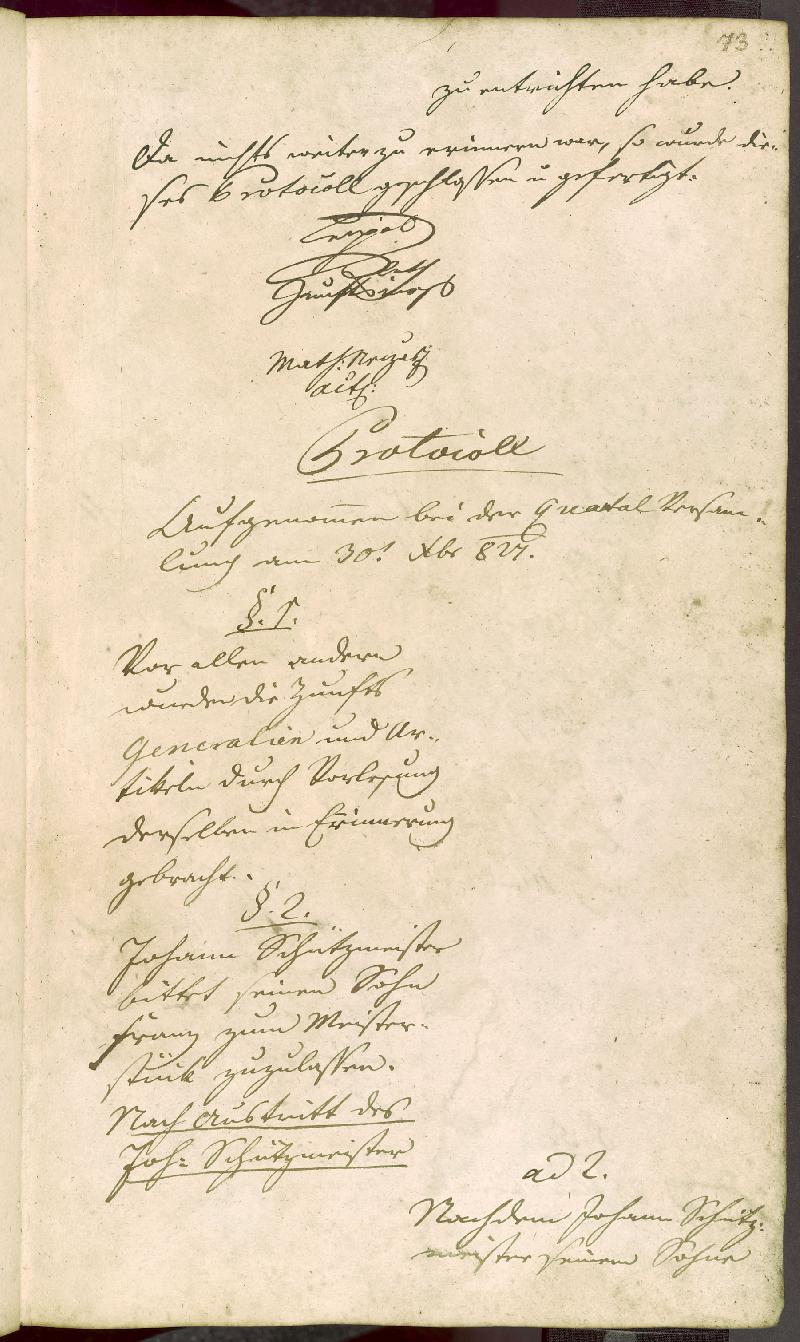 73
zu entrichten habe.
Da nichts weiter zu erinnern war, so wurde die-
ses Protocoll geschlossen u gefertigt.
Math:
act:
Protocoll
Aufgenom̅en bei der Quartal Versam-
lung am 30t Xbr 827.
§. 1.
Vor allen andern
wurden die Zunfts
Generalien und Ar-
tikeln durch Vorlesung
derselben in Erinnerung
gebracht.
§. 2.
Johann Schützmeister
bittet seinen Sohn
Franz zum Meister-
stück zuzulassen.
Nach Austritt des
Joh: Schützmeister
ad 2.
Nachdem Johann Schütz-
meister seinem Sohne